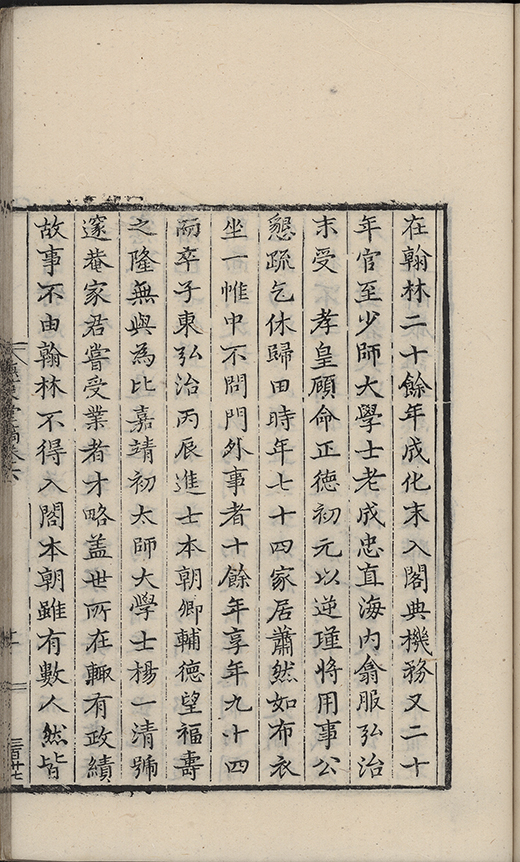 在翰林二十餘年成化末入閣典機務又二十
年官至少師大學士老成忠直海內翕服弘治
末受　孝皇顧命正德初元以逆瑾將用事公
懇疏乞休歸田時年七十四家居蕭然如布衣
坐一惟中不問門外事者十餘年享年九十四
而卒子東弘治丙辰進士本朝卿輔德望福壽
之隆無與為比嘉靖初太師大學士楊一清號
邃菴家君嘗受業者才略蓋世所在輒有政績
故事不由翰林不得入閣本朝雖有數人然皆